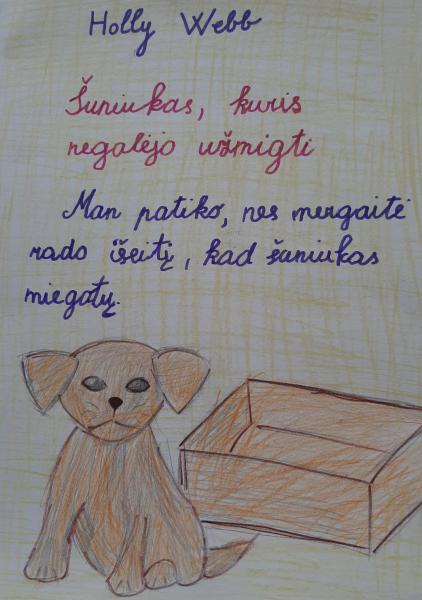 Holly Webb
Šuniukas, kuris
negalėjo užmigti
Man patiko, nes mergaitė
rado išeitį, kad šuniukas
miegotų.